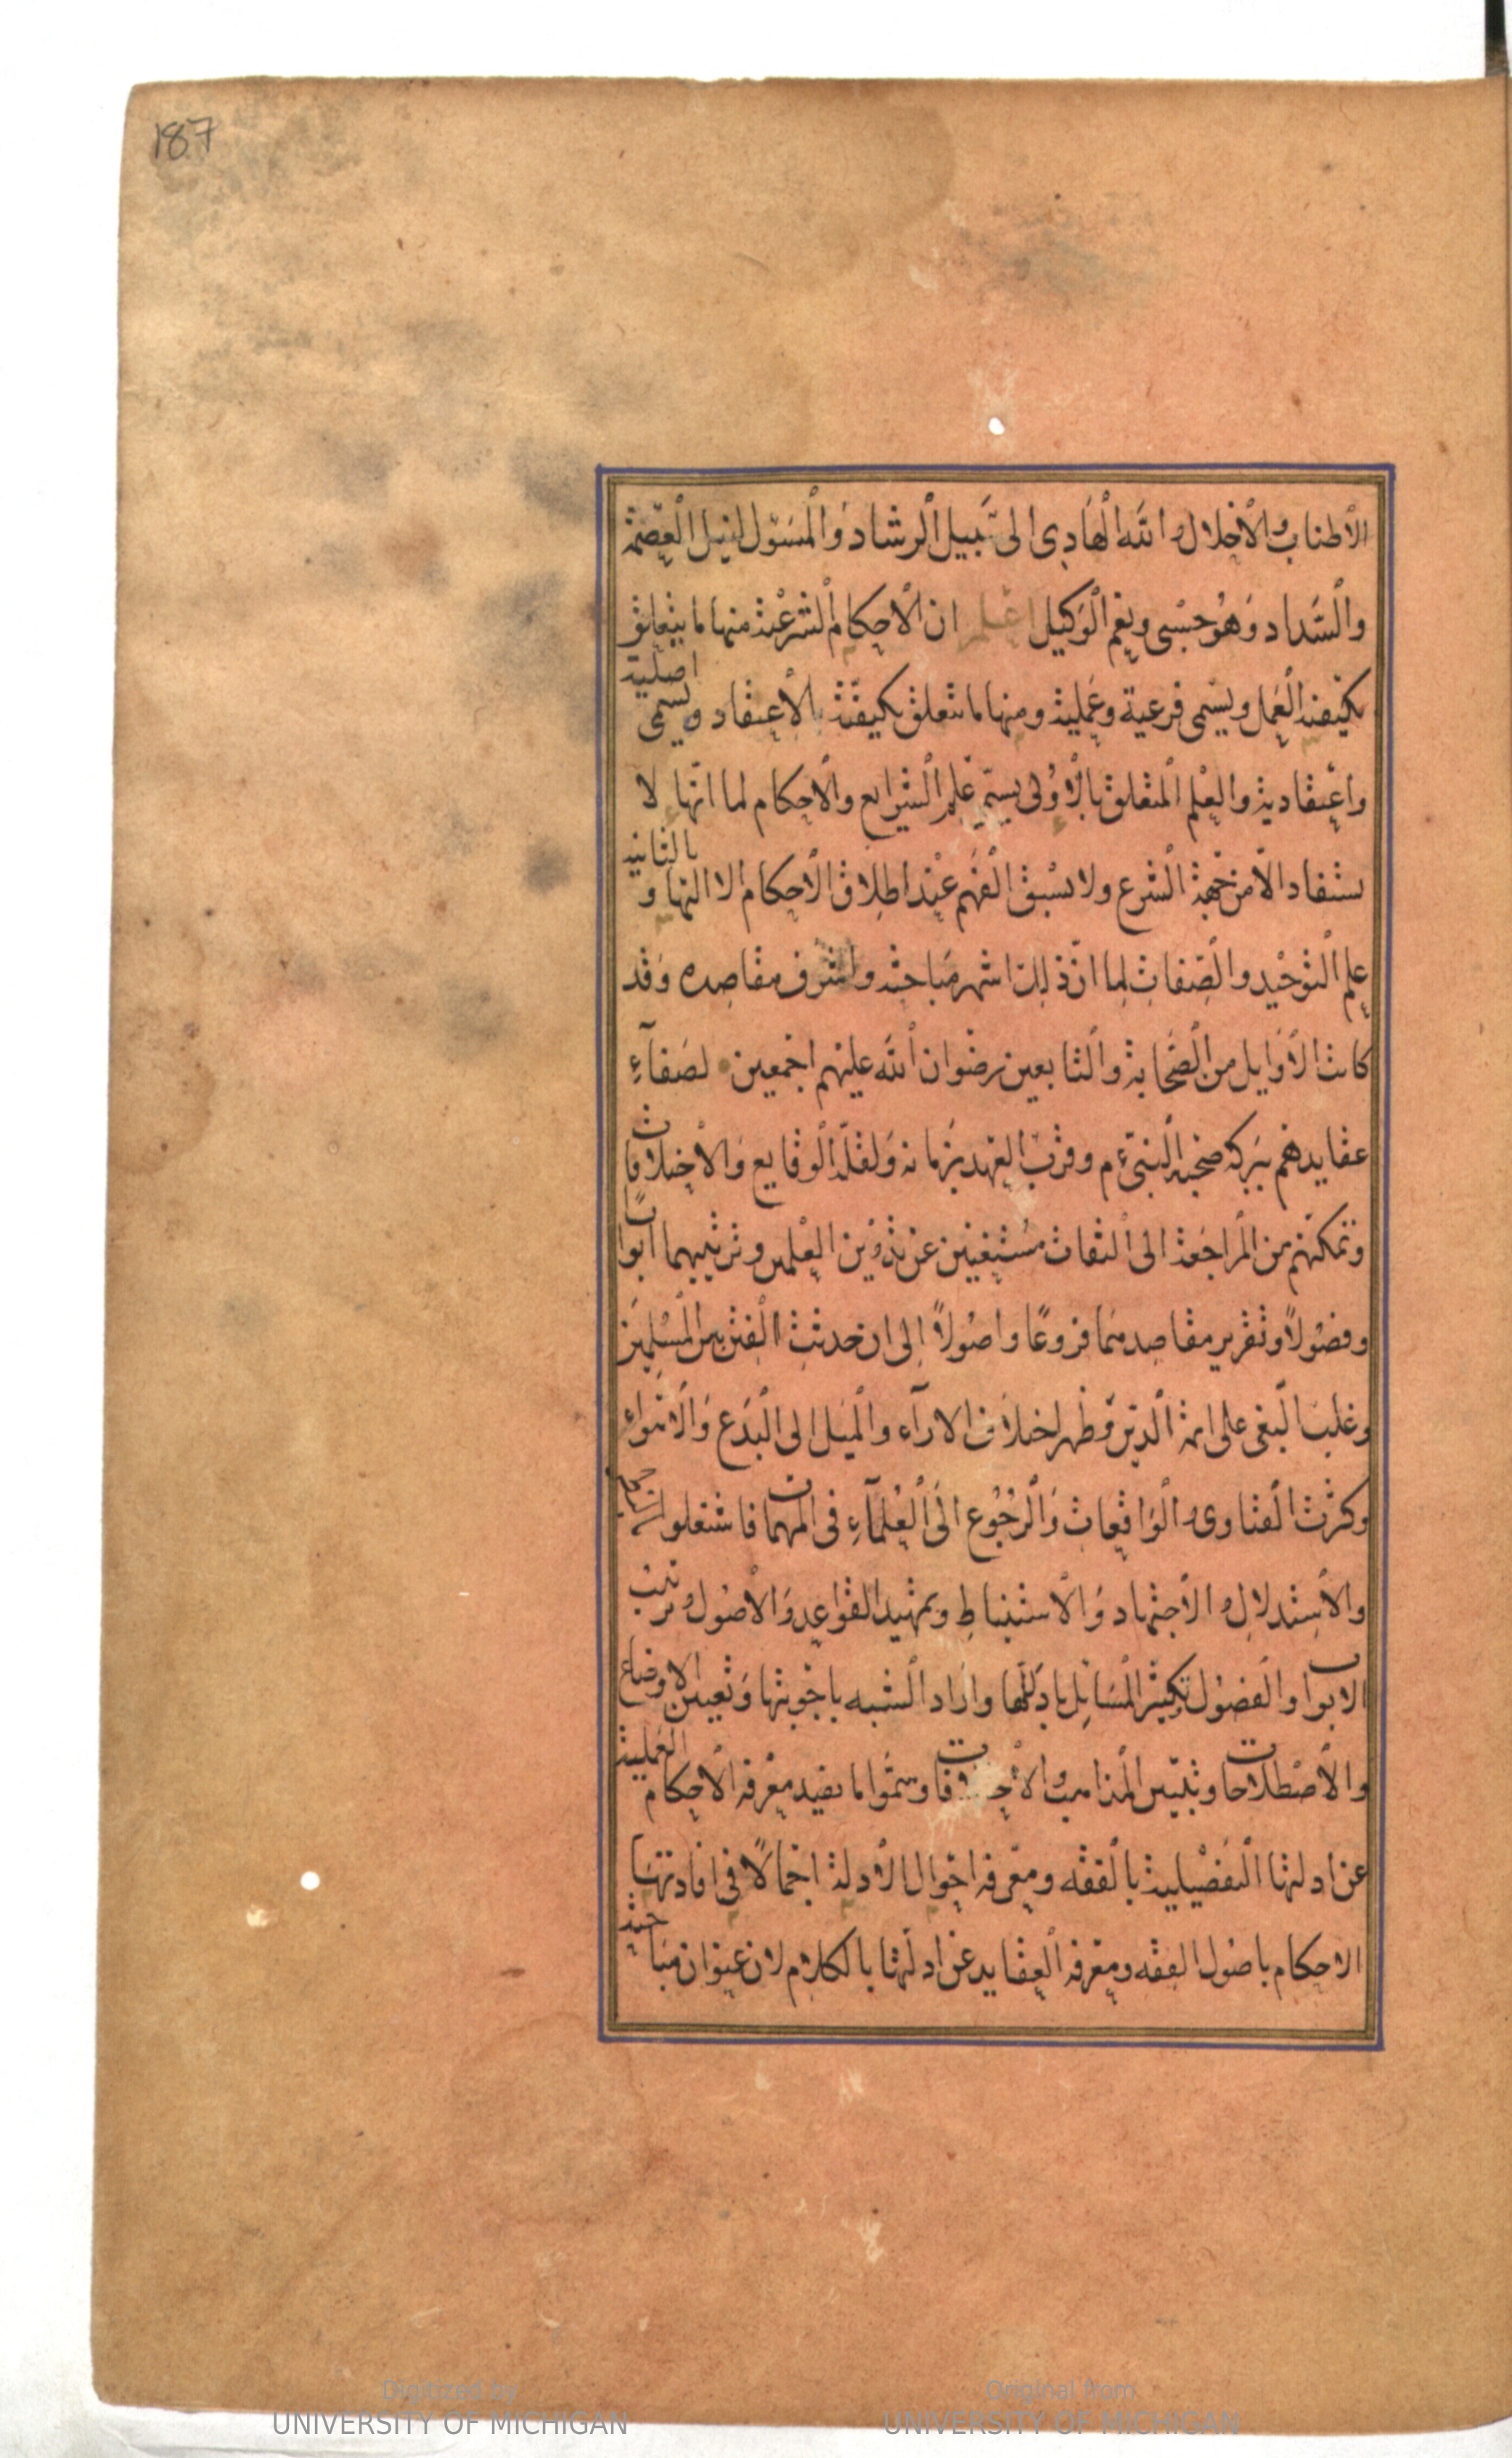 187
الاطناب والاخلال والله الهادى الى سبيل الرشاد والمسؤل لنيل العصمة
والسداد وهو حسبى ونعم الوكيل اعلم ان الاحكام الشرعية منها ما يتعلق
بكيفية العمل ويسمى فرعية وعملية ومنها ما يتعلق بكيفية بالاعتقاد ويسمى اصلية
واعتقادية والعلم المتعلق بالاولى يسمى علم الشرايع والاحكام لما انها لا
يستفاد الا من جهة الشرع ولا يسبق الفهم عند اطلاق الاحكام الا اليها و بالثانية
علم التوحيد والصفات لما ان ذلك اشهر مباحثه واشرف مقاصده وقد
كانت الاوايل من الصحابة والتابعين رضوان الله عليهم اجمعين لصفآء
عقايدهم ببركة صحبة النبى ءم وقرب العهد بزمانه ولقلة الوقايع والاختلافات
وتمكنهم من المراجعة الى الثقات مستغنين عن تدوين العلمين وترتيبهما ابوابا
وفصولاً وتقرير مقاصدهما فروعًا واصولاً الى ان حدثت الفتن بين المسلمين
وغلب البغى على ائمة الدين وظهر اختلاف الارآء والميل الى البدع والاهواء
وكثرت الفتاوى والواقعات والرجوع الى العلمآء فى المهمات فاشتغلوا بالنظر
والاستدلال والاجتهاد والاستنباط وتمهيد القواعد والاصول وترتيب
الابواب والفصول تكثير المسائل بادلتها وايراد الشبه باجوبتها وتعيين الاوضاع
والاصطلاحات وتبيين المذاهب والاختلافات وسموا ما يفيد معرفة الاحكام العملية
عن ادلتها التفصيلية بالفقه ومعرفة احوال الادلة اجمالاً فى افادتها
الاحكام باصول الفقه ومعرفة العقايد عن ادلتها بالكلام لان عنوان مباحثه
Digitized by
UNIVERSITY OF MICHIGAN
Original from
UNIVERSITY OF MICHIGAN